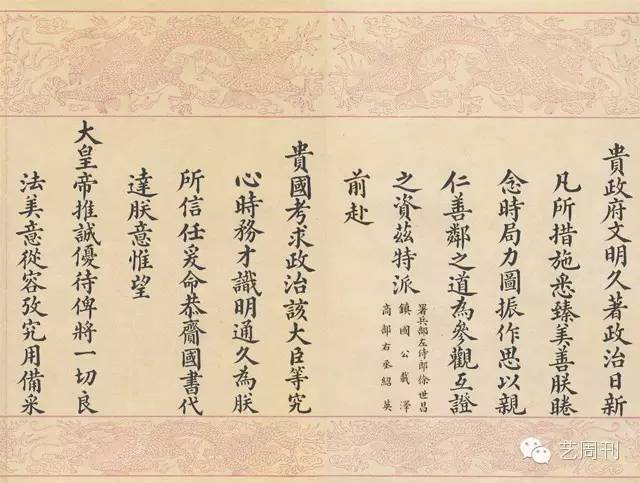 貴政府文明久著政治日新
凡所措施悉臻美善朕睠
念時局力圖振作思以親
仁善鄰之道為參觀互證
之資茲特派
署兵部左侍郎徐世昌
鎮國公載澤
商部右丞紹英
前赴
貴國考求政治該大臣等究
心時務才識明通久為朕
所信任爰命恭齎國書代
達朕意惟望
大皇帝推誠優待俾將一切良
法美意從容攷究用備采
艺周刊